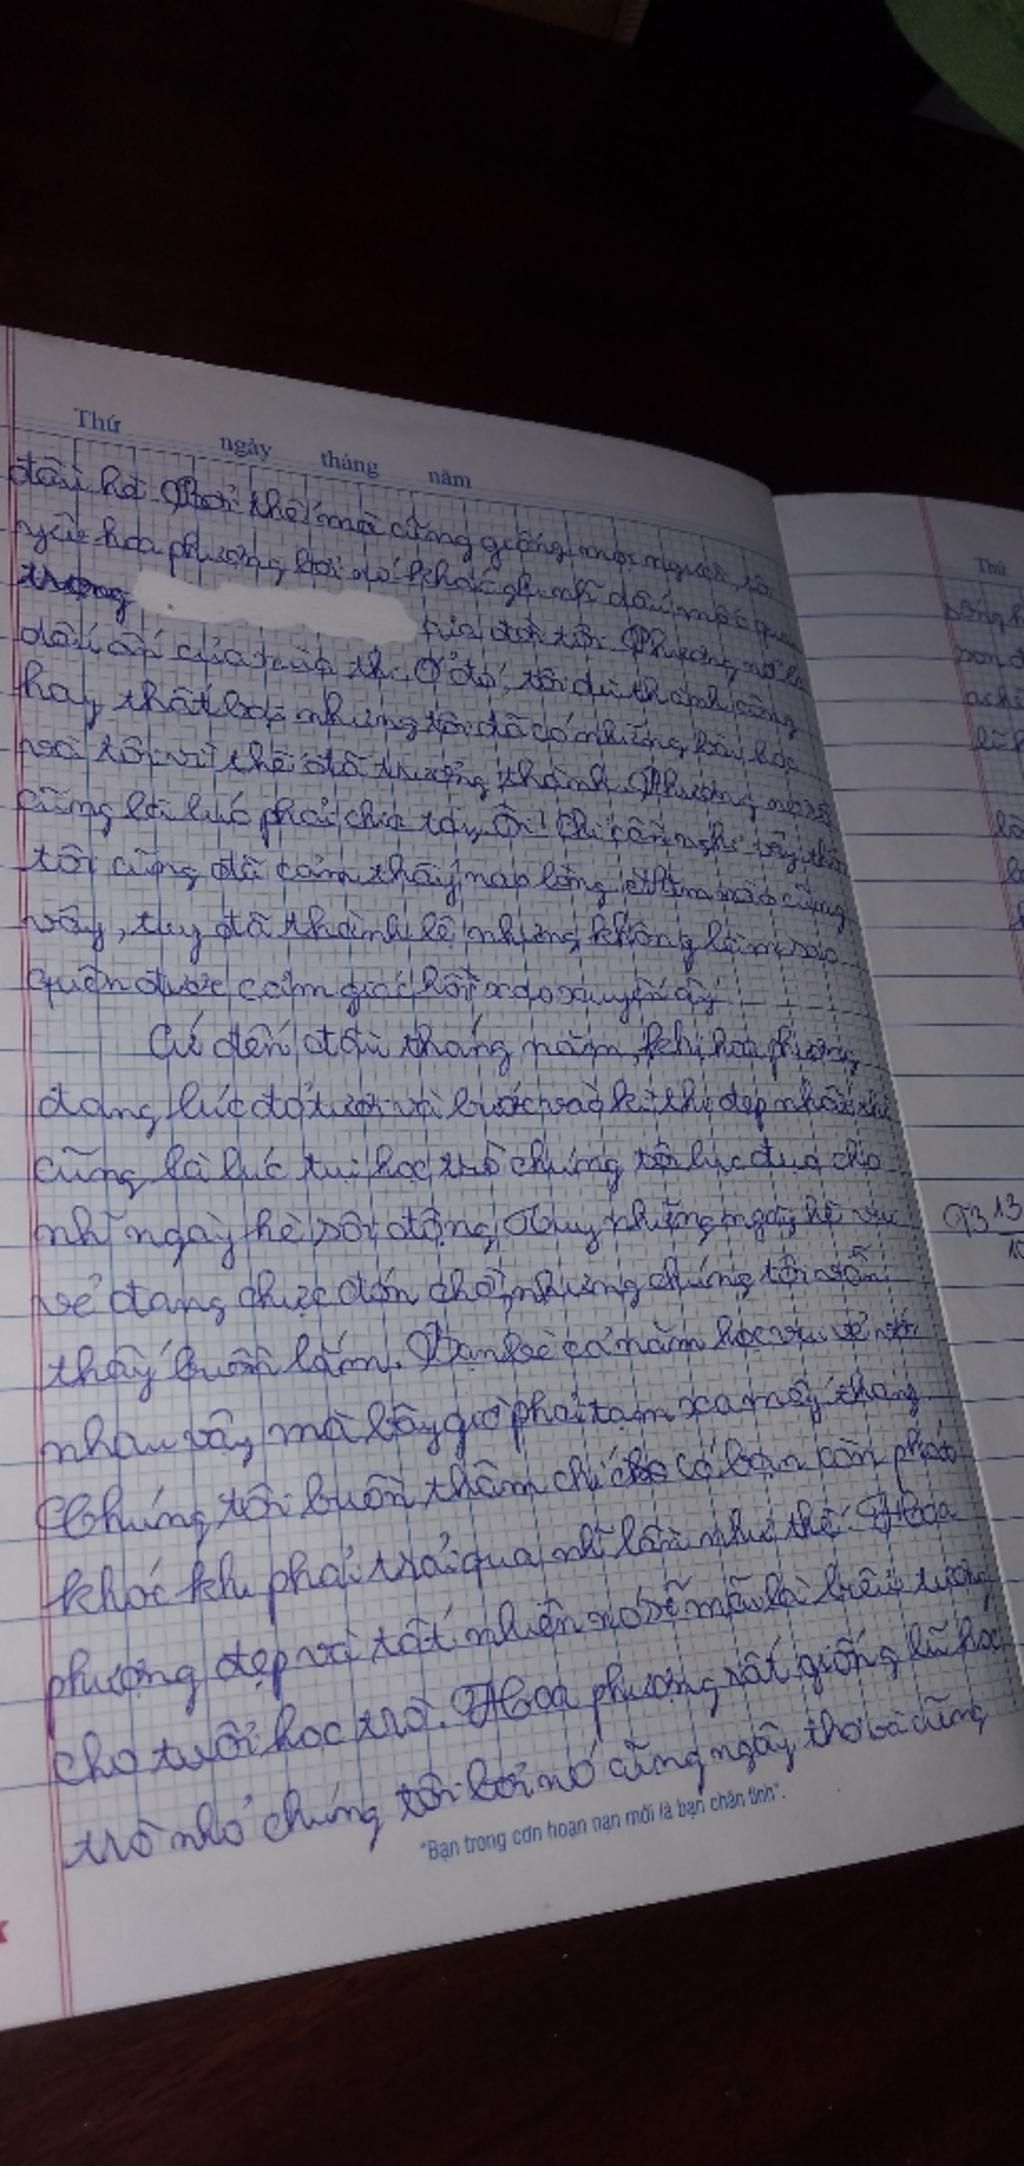 Thứ ngày tháng năm
đầu hạ. Bởi thế mà cũng giống mọi người, tôi
yêu hoa phượng bởi nó khắc ghi
trọng của đời tôi. Phượng nở là
dấu ấn của mùa thi. Ở đó, tôi dù thành công
hay thất bại nhưng tôi đã có những bài học
và tôi vì thế đã trưởng thành. Phượng nở
cũng là lúc phải chia tay. Ôi! Chỉ cần nghĩ vậy thôi
tôi cũng đã cảm thấy nao lòng. năm nào cũng
vậy, tuy đã thành lệ nhưng không làm sao
quên được cảm giác hồi xao xuyến ấy.
Cứ đến đầu tháng năm, khi hoa phượng
đang lúc đỏ tươi và bước vào kì thi đẹp nhất thì
cũng là lúc tụi học trò chúng tôi lục đục cho
nhì ngày hè sôi động. Tuy những ngày hè vui
vẻ đang chực đón chờ, nhưng chúng tôi vẫn
thấy buồn lắm. Bạn bè cả năm học vui vẻ với
nhau vậy mà bây giờ phải tạm xa mấy tháng.
Chúng tôi buồn thậm chí có bạn còn phát
khóc khi phải trải qua nhì lần như thế. Hoa
phượng đẹp và tất nhiên nó sẽ mãi là biểu tượng
cho tuổi học trò. Hoa phượng rất giống lũ học
trò nhỏ chúng tôi bởi nó cũng ngây thơ và cũng
"Bạn trong cơn hoạn nạn mới là bạn chân tình".
Thứ